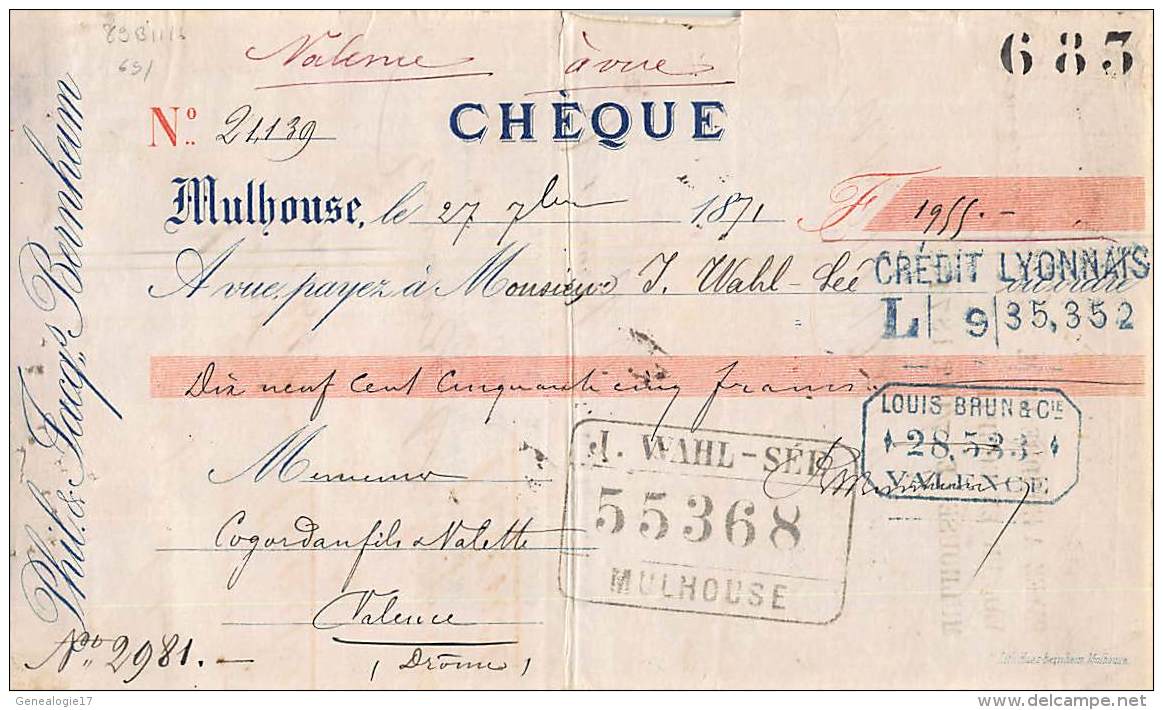 Valence à vue
683
Nº 21,139 CHÈQUE
Mulhouse, le 27 7bre 1871 F 1955.-
A vue, payez à Monsieur J. Wahl-Sée ou ordre
CRÉDIT LYONNAIS
L 9 35,352
Dix neuf cent cinquante cinq francs.
LOUIS BRUN & CIE
28,533
VALENCE
Messieurs
J. WAHL-SÉE
55368
MULHOUSE
Cogordan fils & Valette
Valence
(Drôme)
Nº 2981.-
Phil. & Jacqs. Bernheim
Lith. Bader-Bernheim, Mulhouse.
Genealogie17
delcampe.net